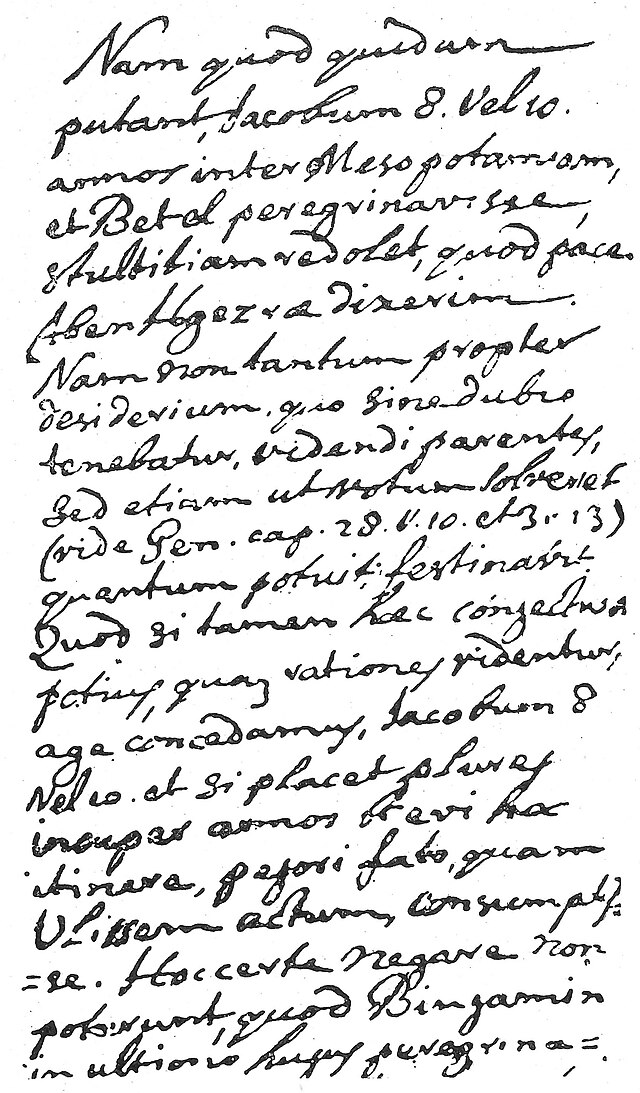 Nam quod quidam
putant, Jacobum 8. vel 10.
annos inter Mesopotamiam,
et Betel peregrinavisse,
stultitiam redolet, quod pace
Aben Hgezræ dixerim.
Nam non tantum propter
desiderium, quo sine dubio
tenebatur, videndi parentes,
sed etiam ut votum solveret
(vide Gen. cap. 28. V. 10. et 31. 13)
quantum potuit, festinavit.
Quod si tamen hæc conjectura
potius, quam rationes videntur,
age concedamus, Jacobum 8
vel 10. et si placet plures
insuper annos itineri hac
itinere, pejori fato, quam
Ulissem actum, consumpsis=
=se. Hoc certe negare non
poterunt, quod Binjamin
in ultimo hujus peregrina=